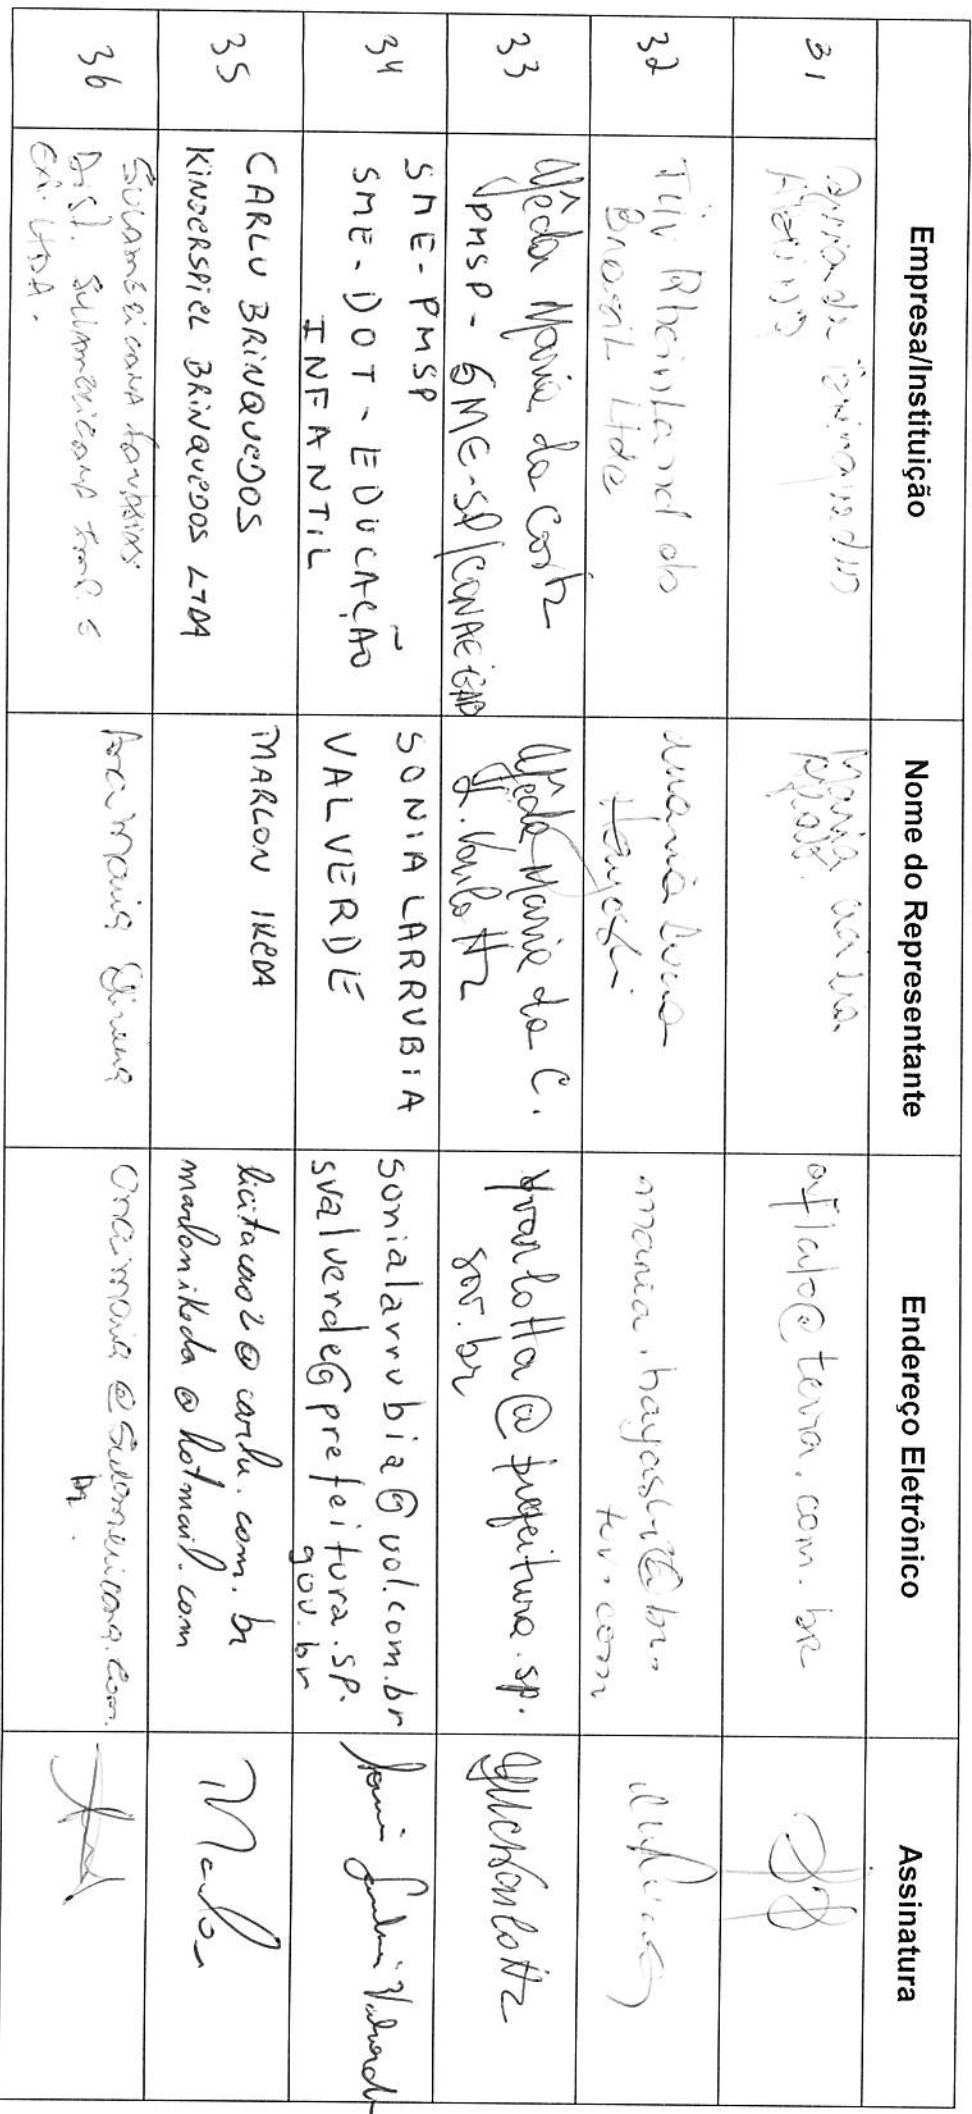 Empresa/Instituição
Nome do Representante
Endereço Eletrônico
Assinatura
31
Maria
aflalo@terra.com.br
32
TÜV Rheinland do
Brasil Ltda
Hayashi
maria.hayashi@br.
tuv.com
33
Maria da Costa
PMSP - SME-SP/CONAE
Maria da C.
@prefeitura.sp.
gov.br
34
SME-PMSP
SME-DOT-EDUCAÇÃO
INFANTIL
SONIA LARRUBIA
VALVERDE
sonialarrubia@uol.com.br
svalverde@prefeitura.sp.
gov.br
35
CARLU BRINQUEDOS
KINDERSPIEL BRINQUEDOS LTDA
MARLON IKEDA
licitacao2@carlu.com.br
marlonikeda@hotmail.com
Marlon
36
Sulamericana Fantasias
Dist. Sulamericana
LTDA.
Ana Maria
anamaria@sulamericana.com.
br.